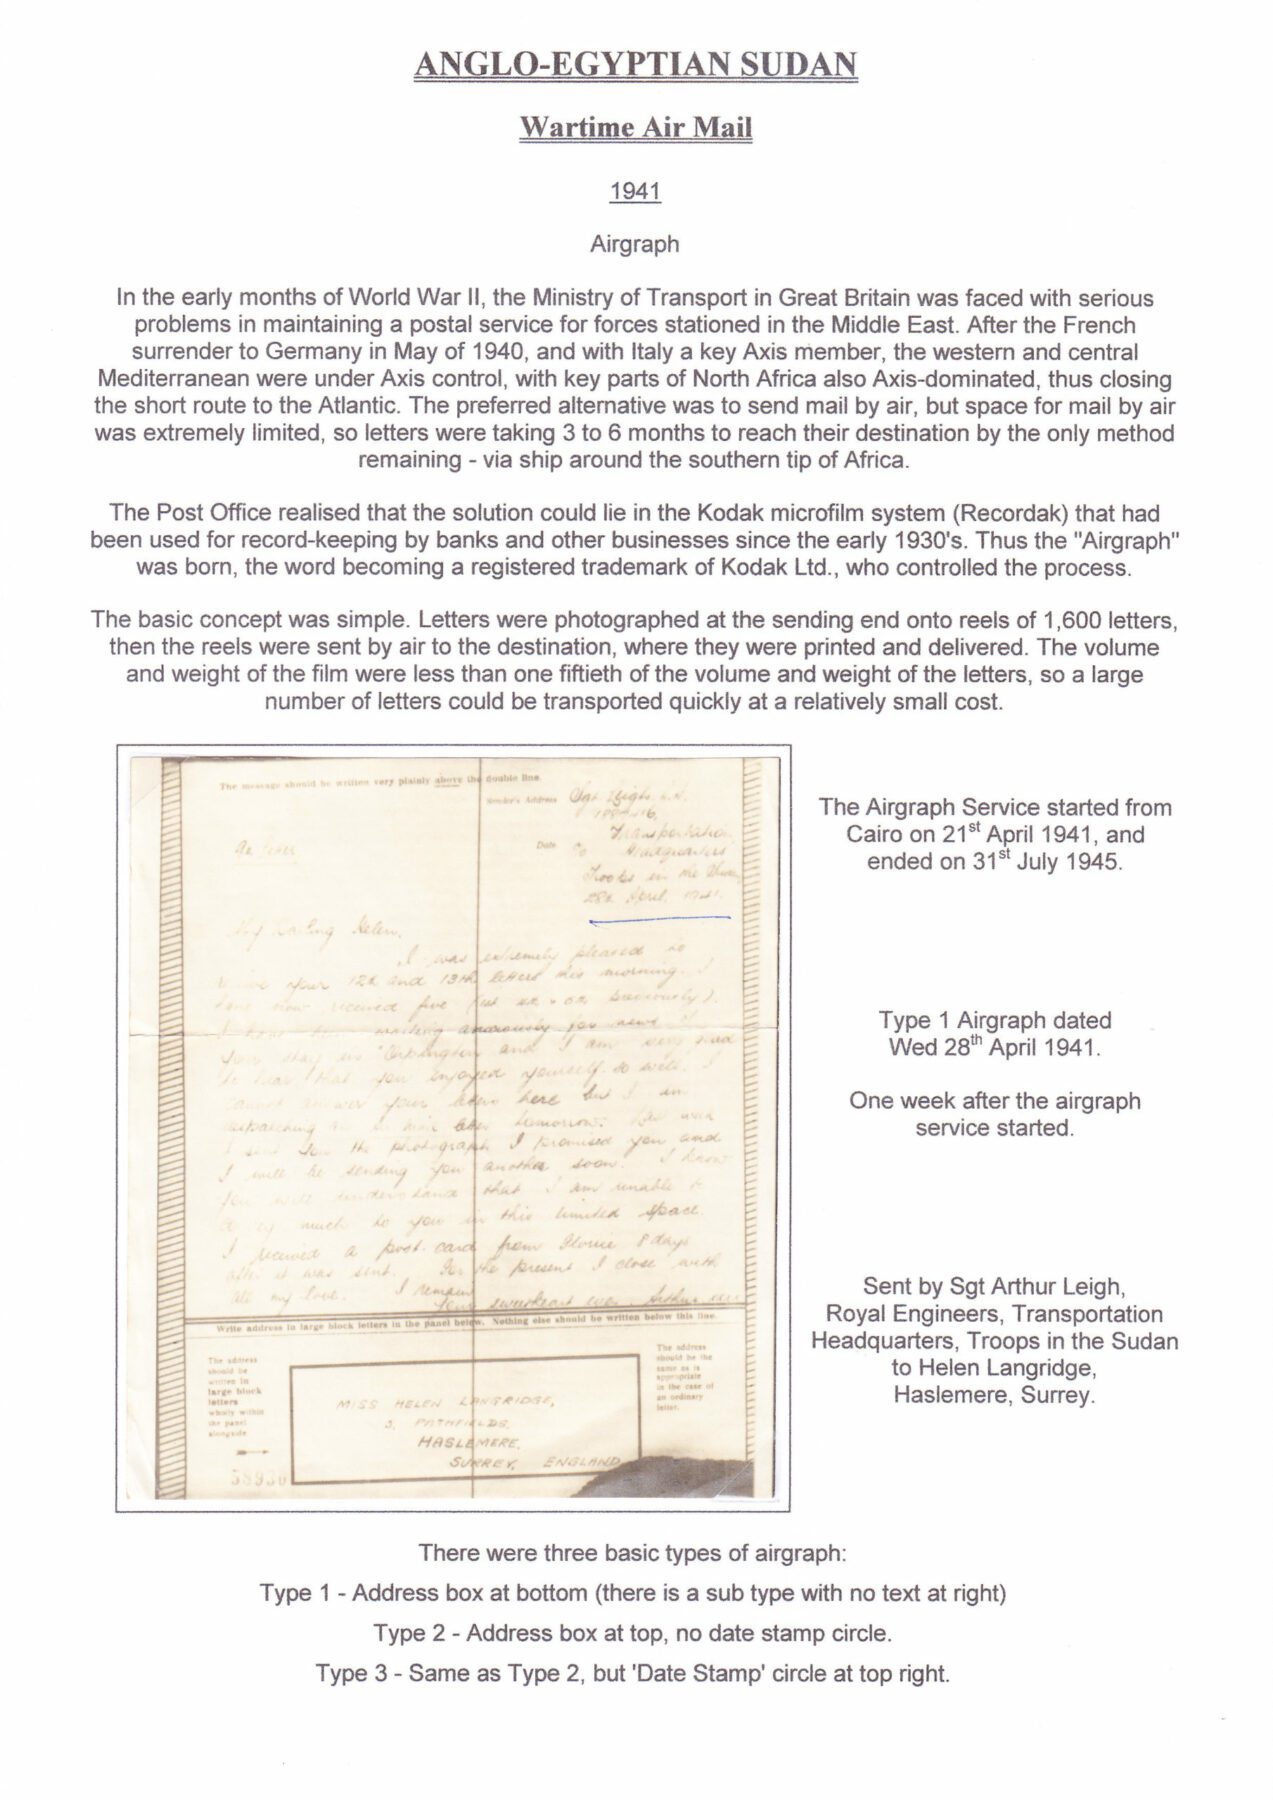 ANGLO-EGYPTIAN SUDAN
Wartime Air Mail
1941
Airgraph
In the early months of World War II, the Ministry of Transport in Great Britain was faced with serious
problems in maintaining a postal service for forces stationed in the Middle East. After the French
surrender to Germany in May of 1940, and with Italy a key Axis member, the western and central
Mediterranean were under Axis control, with key parts of North Africa also Axis-dominated, thus closing
the short route to the Atlantic. The preferred alternative was to send mail by air, but space for mail by air
was extremely limited, so letters were taking 3 to 6 months to reach their destination by the only method
remaining - via ship around the southern tip of Africa.
The Post Office realised that the solution could lie in the Kodak microfilm system (Recordak) that had
been used for record-keeping by banks and other businesses since the early 1930's. Thus the "Airgraph"
was born, the word becoming a registered trademark of Kodak Ltd., who controlled the process.
The basic concept was simple. Letters were photographed at the sending end onto reels of 1,600 letters,
then the reels were sent by air to the destination, where they were printed and delivered. The volume
and weight of the film were less than one fiftieth of the volume and weight of the letters, so a large
number of letters could be transported quickly at a relatively small cost.
The message should be written very plainly above the double line.
Sender's Address
Sgt Leigh
Transportation
Date
Headquarters
Troops in the
28th April, 1941.
My Darling Helen,
I was extremely pleased to
your 12th and 13th letters this morning. I
have now received five previously).
I have been waiting anxiously for news
your stay in Orpington and I am very glad
to hear that you enjoyed yourself so well. I
cannot answer your letters here but I am
despatching an air mail letter tomorrow.
I sent you the photograph I promised you and
I will be sending you another soon. I know
you will understand that I am unable to
say much to you in this limited space.
I received a post card from 8 days
after it was sent. For the present I close with
all my love. I remain
Your sweetheart ever Arthur
Write address in large block letters in the panel below. Nothing else should be written below this line.
The address
should be
written in
large block
letters
wholly within
the panel
alongside
The address
should be the
same as is
appropriate
in the case of
an ordinary
letter.
MISS HELEN LANGRIDGE,
3, PATHFIELDS,
HASLEMERE,
SURREY, ENGLAND
58930
The Airgraph Service started from
Cairo on 21st April 1941, and
ended on 31st July 1945.
Type 1 Airgraph dated
Wed 28th April 1941.
One week after the airgraph
service started.
Sent by Sgt Arthur Leigh,
Royal Engineers, Transportation
Headquarters, Troops in the Sudan
to Helen Langridge,
Haslemere, Surrey.
There were three basic types of airgraph:
Type 1 - Address box at bottom (there is a sub type with no text at right)
Type 2 - Address box at top, no date stamp circle.
Type 3 - Same as Type 2, but 'Date Stamp' circle at top right.